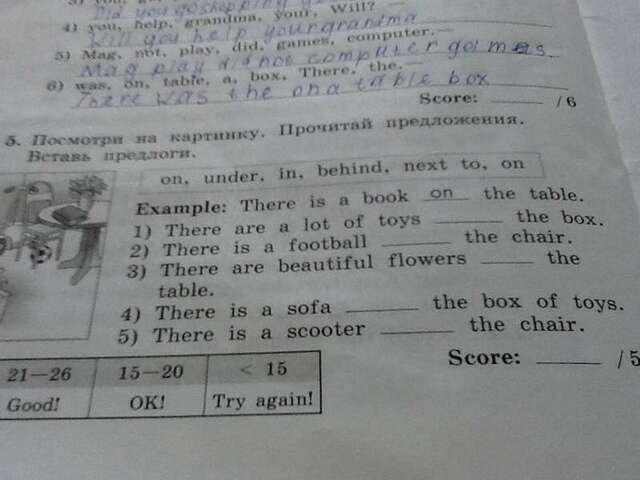 Did you go shopping
4) you, help, grandma, your, Will? —
Will you help your grandma
5) Mag, not, play, did, games, computer.—
Mag play did not computer games
6) was, on, table, a, box, There, the.—
There was the on a table box
Score: ____ /6
5. Посмотри на картинку. Прочитай предложения.
Вставь предлоги.
on, under, in, behind, next to, on
Example: There is a book on the table.
1) There are a lot of toys ____ the box.
2) There is a football ____ the chair.
3) There are beautiful flowers ____ the
table.
4) There is a sofa ____ the box of toys.
5) There is a scooter ____ the chair.
Score: ____ /5
21—26 15—20 < 15
Good! OK! Try again!